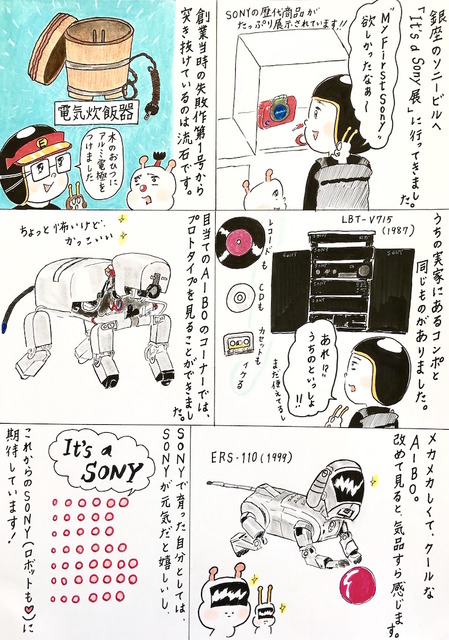 銀座のソニービルへ
「It's a Sony 展」に行ってきました。
"My First Sony"
欲しかったなぁ〜
SONYの歴代商品が
たっぷり展示されています!!
創業当時の失敗作第1号から
突き抜けているのは流石です。
電気炊飯器
木のおひつに
アルミ電極を
つけました
うちの実家にあるコンポと
同じものがありました。
LBT-V715
(1987)
SONY
SONY
SONY
レコードも
CDも
カセットも
イケる
まだ使えてるし
あれ!?
うちのといっしょ
!!
目当てのAIBOのコーナーでは、
プロトタイプを見ることができました。
ちょっと怖いけど、
かっこいい
メカメカしくて、クールな
AIBO。
改めて見ると、気品すら感じます。
ERS-110(1999)
SONYで育った自分としては、
SONYが元気だと嬉しいし、
It's a
SONY
これからのSONY(ロボットも♥)に
期待しています!